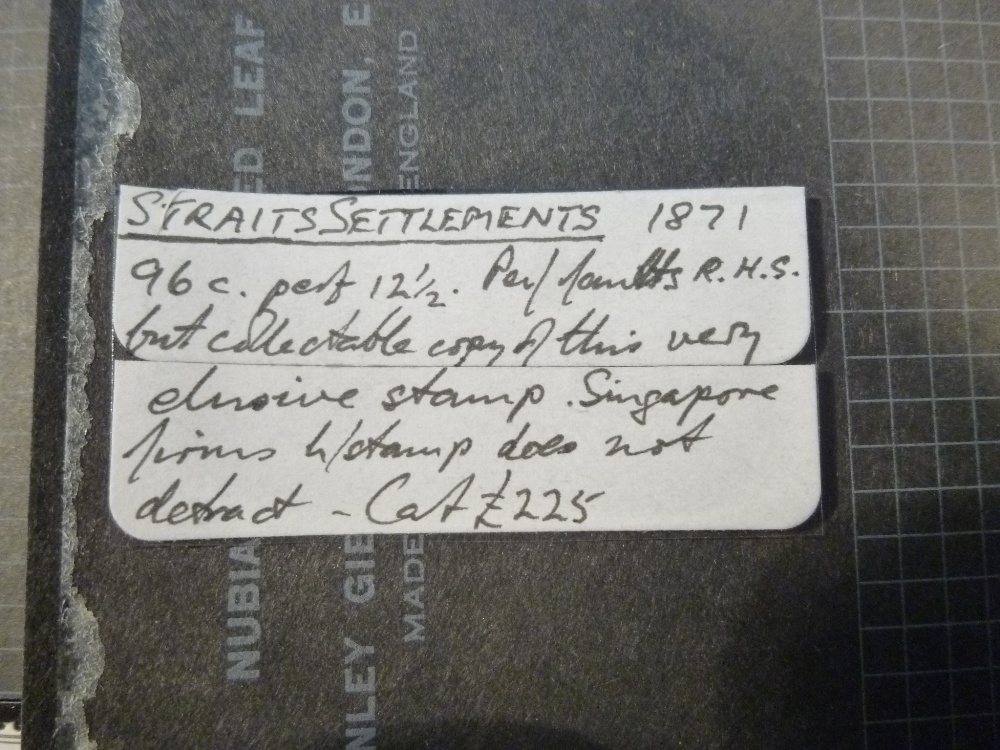 STRAITS SETTLEMENTS 1871
96 c. perf 12½. Perf faults R.H.S.
but collectable copy of this very
elusive stamp. Singapore
firms h/stamp does not
detract - Cat £225
NUBIA ED LEAF
NLEY GIB ONDON, E
MADE ENGLAND